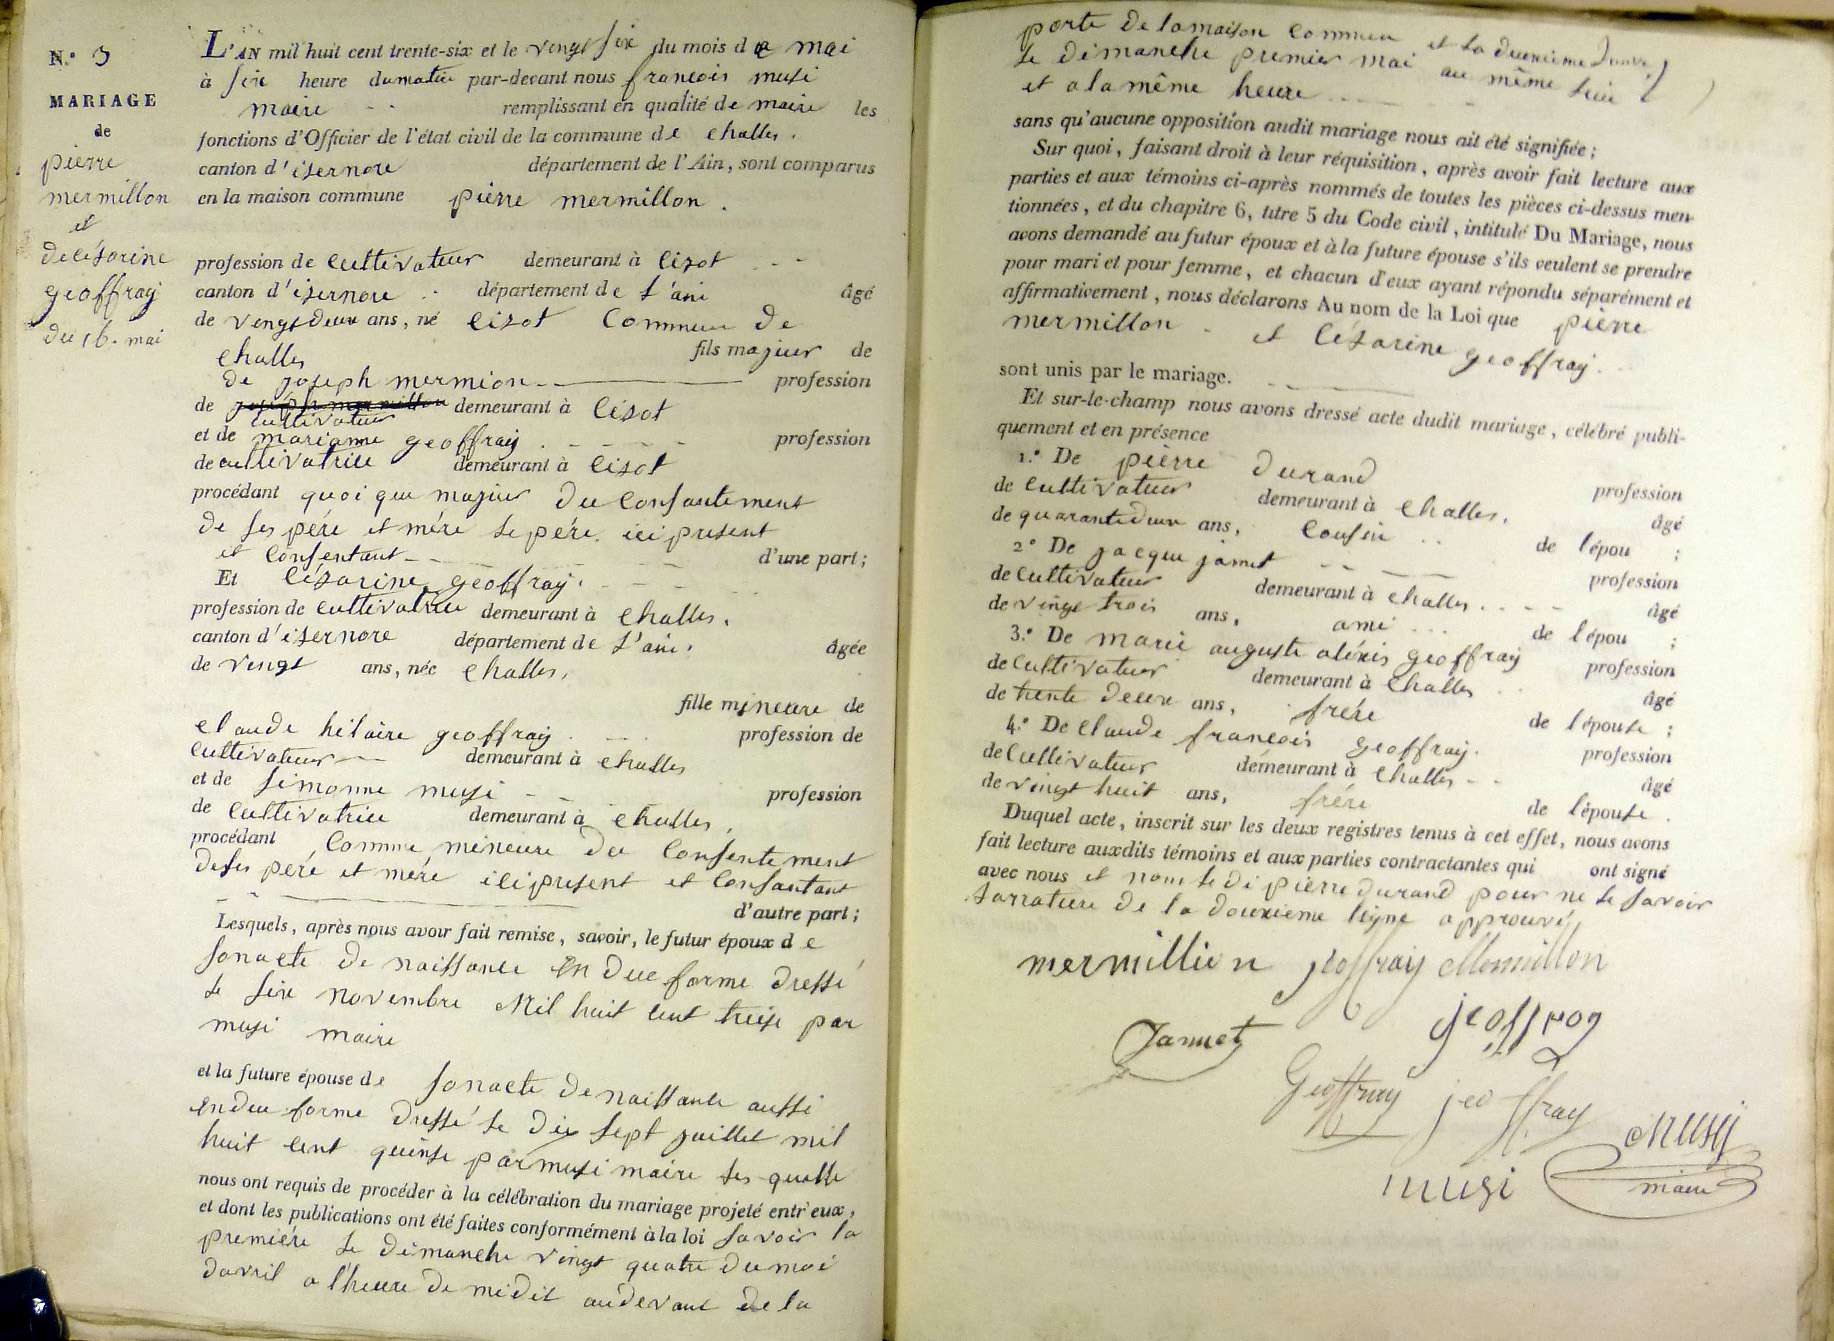 N.° 3
MARIAGE
de
pierre
mermillon
et
de césarine
geoffray
du 16. mai
L'AN mil huit cent trente-six et le vingt six du mois de mai
à six heure du matin par-devant nous francois musi
maire remplissant en qualité de maire les
fonctions d'Officier de l'état civil de la commune de challes.
canton d'isernore département de l'Ain, sont comparus
en la maison commune pierre mermillon.
profession de cultivateur demeurant à cisot
canton d'isernore département de l'ain âgé
de vingt deux ans, né cisot commune de
challes fils majeur de
de joseph mermion profession
de cultivateur demeurant à cisot
et de marianne geoffray profession
de cultivatrice demeurant à cisot
procédant quoi que majeur du consantement
de ses pére et mére le pére ici present
et consentant d'une part;
Et césarine geoffray.
profession de cultivatrice demeurant à challes.
canton d'isernore département de l'ain. âgée
de vingt ans, née challes.
fille mineure de
claude hilaire geoffray profession de
cultivateur demeurant à challes
et de simonne musi profession
de cultivatrice demeurant à challes.
procédant comme mineure du consentement
de ses peré et méré ici present et consantant
d'autre part;
Lesquels, après nous avoir fait remise, savoir, le futur époux de
son acte de naissance en due forme dressé
le six novembre Mil huit cent treize par
musi maire
et la future épouse de son acte de naissance aussi
en due forme dressé le dix sept juillet mil
huit cent quinse par musi maire les quelle
nous ont requis de procéder à la célébration du mariage projeté entr'eux,
et dont les publications ont été faites conformément à la loi savoir la
premiére le dimanche vingt quatre du moi
davril a l'heure de midit audevant de la
porte de la maison commun et la deuxieme
le dimanche premier mai au même lieu
et a la même heure
sans qu'aucune opposition audit mariage nous ait été signifiée;
Sur quoi, faisant droit à leur réquisition, après avoir fait lecture aux
parties et aux témoins ci-après nommés de toutes les pièces ci-dessus men-
tionnées, et du chapitre 6, titre 5 du Code civil, intitulé Du Mariage, nous
avons demandé au futur époux et à la future épouse s'ils veulent se prendre
pour mari et pour femme, et chacun d'eux ayant répondu séparément et
affirmativement, nous déclarons Au nom de la Loi que pierre
mermillon et césarine geoffray.
sont unis par le mariage.
Et sur-le-champ nous avons dressé acte dudit mariage, célébré publi-
quement et en présence
1.° De pierre durand profession
de cultivateur demeurant à challes. âgé
de quarante deux ans, cousin de l'épou ;
2° De jacque jamet profession
de cultivateur demeurant à challes. âgé
de vingt trois ans, ami de l'épou ;
3.° De marie auguste aléxis geoffray profession
de cultivateur demeurant à challes âgé
de trente deux ans, frére de l'épouse ;
4.° De claude francois geoffray. profession
de cultivateur demeurant à challes âgé
de vingt huit ans, frére de l'épouse.
Duquel acte, inscrit sur les deux registres tenus à cet effet, nous avons
fait lecture auxdits témoins et aux parties contractantes qui ont signé
avec nous et nom le di pierre durand pour ne le savoir
la rature de la douxieme ligne approuvé,
mermillion geoffray Mermillon
Jamuet geoffroy
Geoffray geoffray
musi Musy
maire